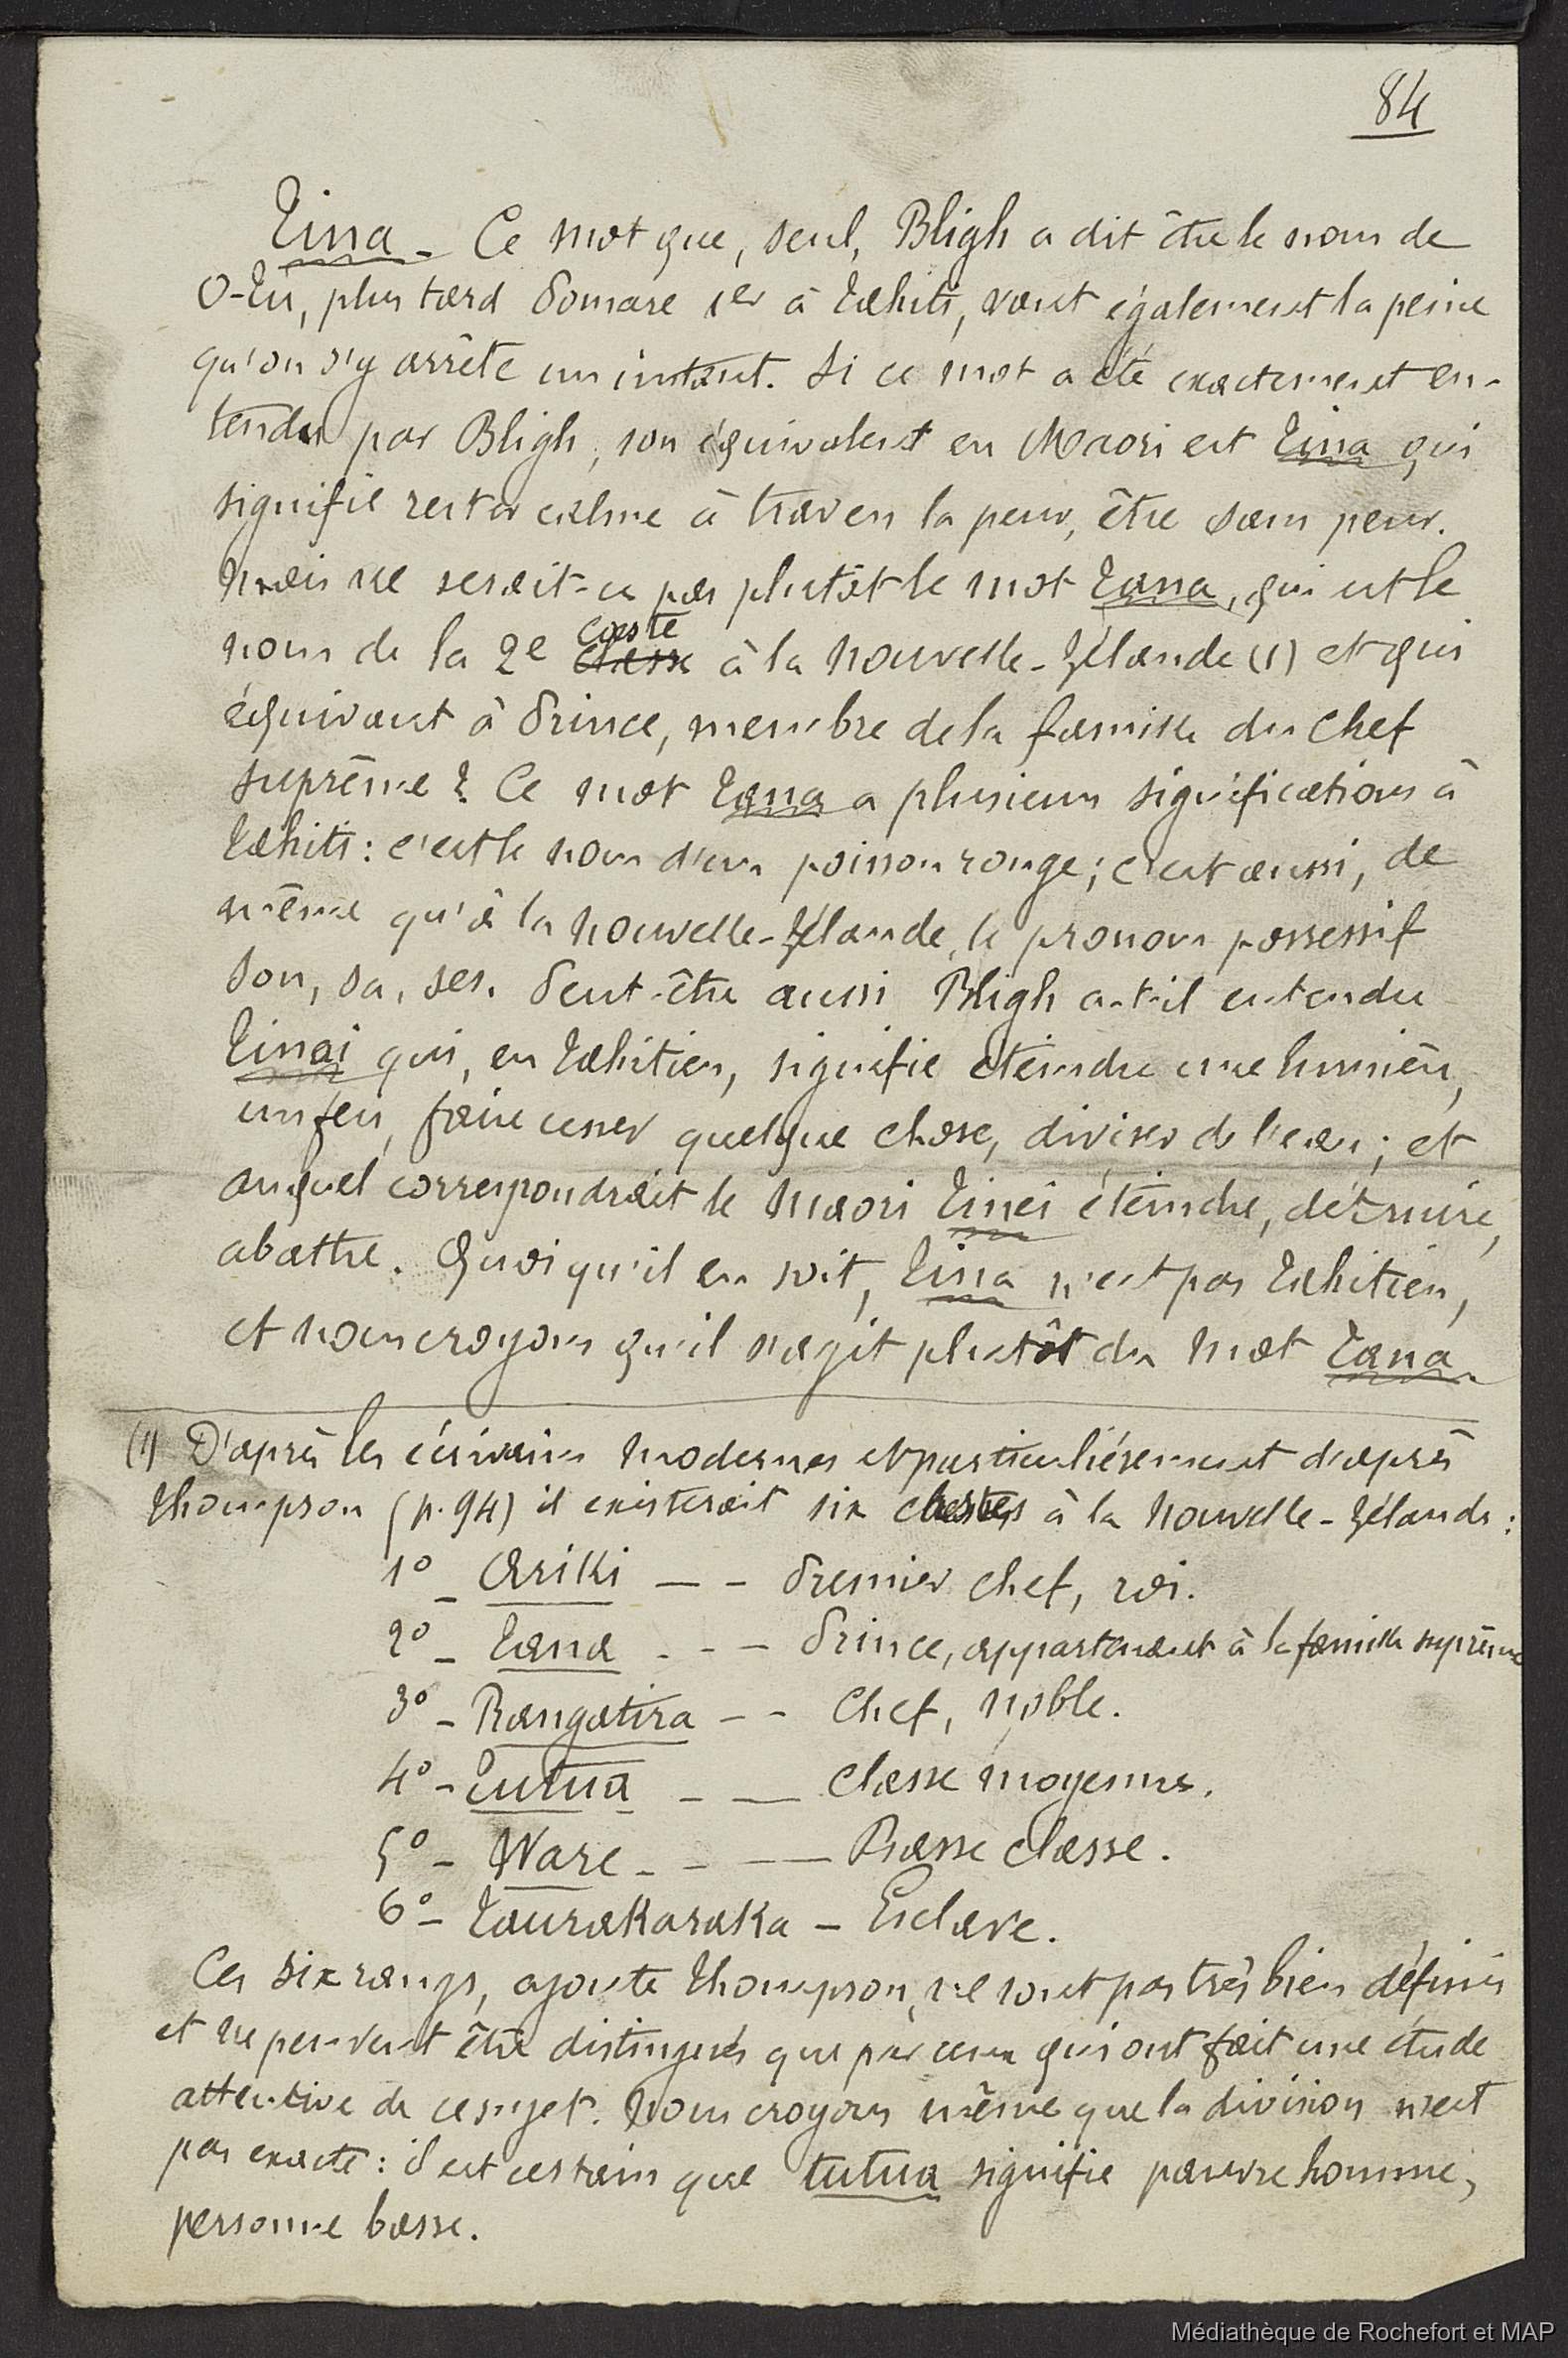 84
Tina - Ce mot que, seul, Bligh a dit être le nom de
O-Tu, plus tard Pomare 1er à Tahiti, vaut également la peine
qu'on s'y arrête un instant. Si ce mot a été exactement en-
tendu par Bligh, son équivalent en Maori est Tina qui
signifie rester calme à travers la peur, être sans peur.
Mais ne serait-ce pas plutôt le mot Tana, qui est le
nom de la 2e classe caste à la Nouvelle-Zélande (1) et qui
équivaut à Prince, membre de la famille du Chef
suprême ? Ce mot Tana a plusieurs significations à
Tahiti : c'est le nom d'un poisson rouge ; c'est aussi, de
même qu'à la Nouvelle-Zélande, le pronom possessif
son, sa, ses. Peut-être aussi Bligh a-t-il entendu
Tinai qui, en Tahitien, signifie éteindre une lumière,
un feu, faire cesser quelque chose, diviser de l'eau ; et
auquel correspondrait le Maori Tinei éteindre, détruire,
abattre. Quoi qu'il en soit, Tina n'est pas Tahitien,
et nous croyons qu'il s'agit plutôt du mot Tana.
(1) D'après les écrivains modernes et particulièrement d'après
Thompson (p. 94) il existerait six castes à la Nouvelle-Zélande :
1° - Ariki - - Premier chef, roi.
2° - Tana - - - Prince, appartenant à la famille suprême
3° - Rangatira - - Chef, noble.
4° - Tutua - - Classe moyenne.
5° - Ware - - - Basse classe.
6° - Taurakaraka - Esclave.
Ces six rangs, ajoute Thompson, ne sont pas très bien définis
et ne peuvent être distingués que par ceux qui ont fait une étude
attentive de ce sujet. Nous croyons même que la division n'est
pas exacte : il est certain que tutua signifie pauvre homme,
personne basse.
Médiathèque de Rochefort et MAP